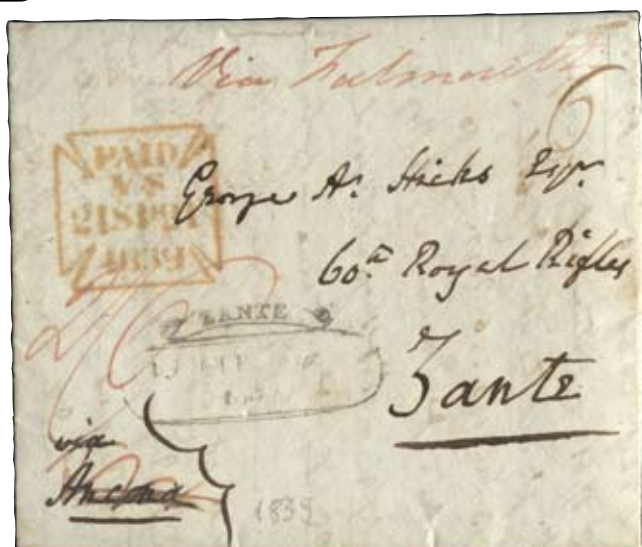 Via Falmouth
6
PAID
21 SP 21
1839
George A. Hicks Esqr.
60th Royal Rifles
ZANTE
Zante
via
Ancona
1839